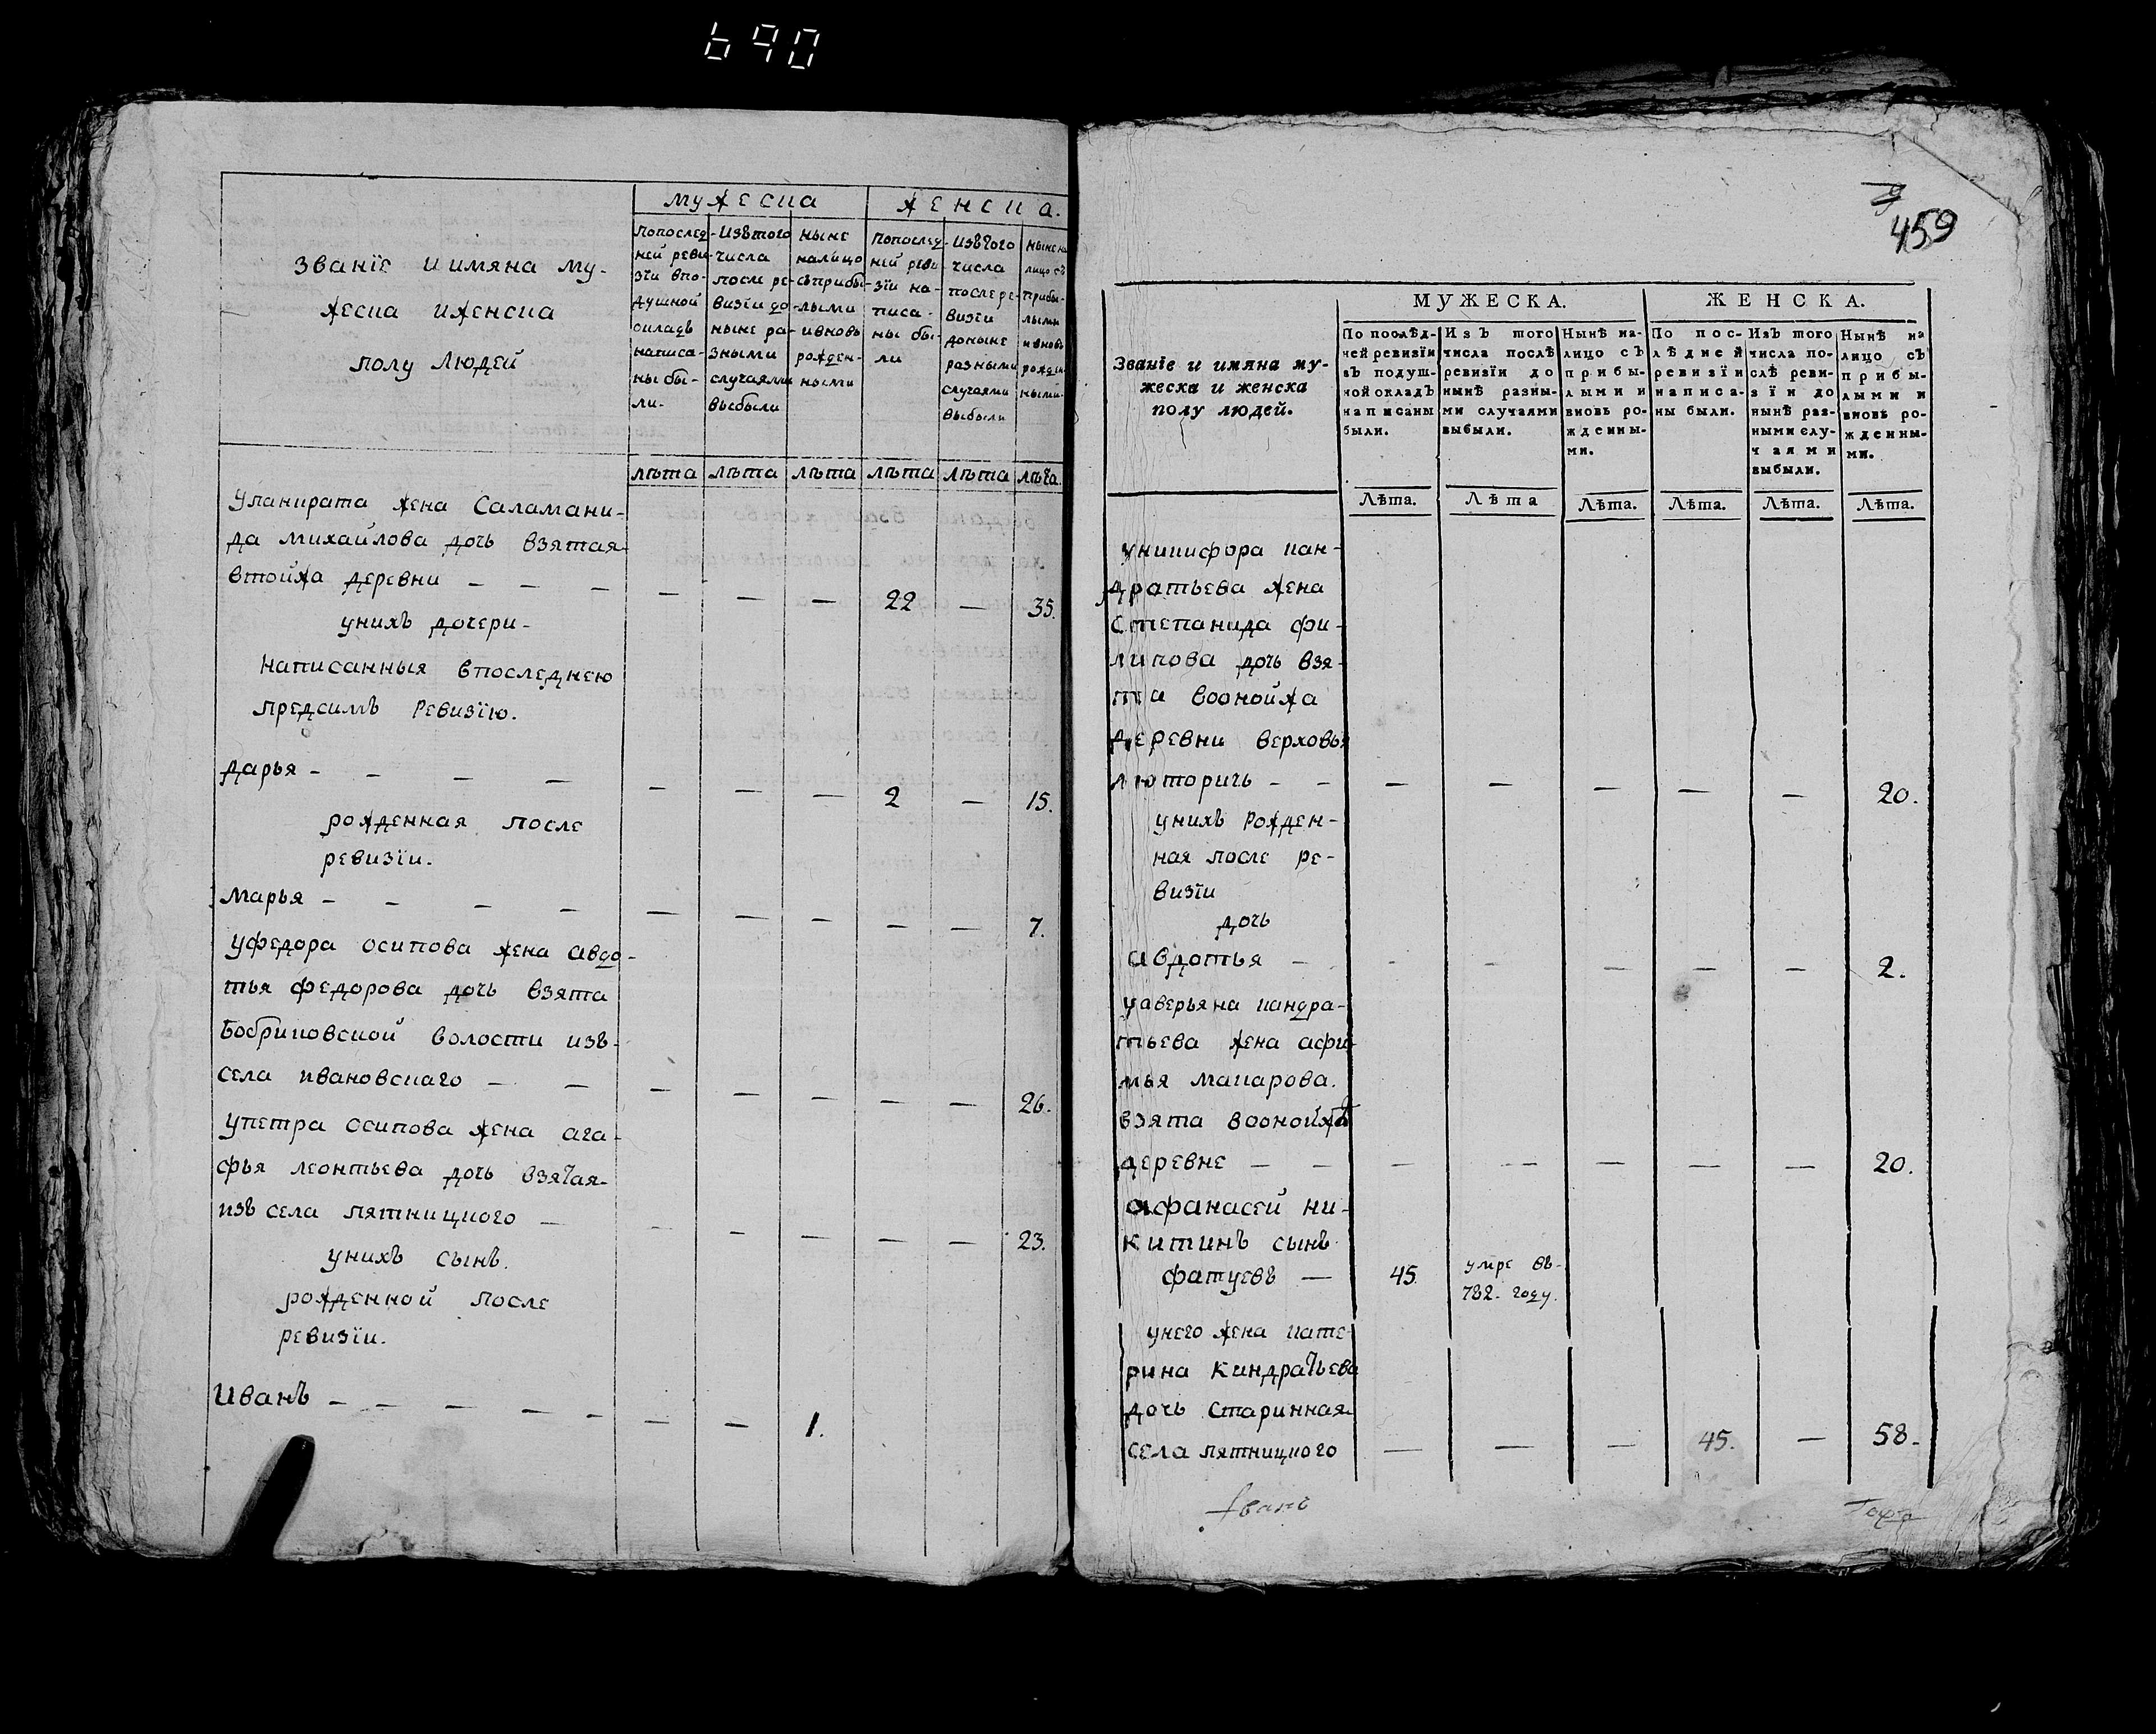 690
мужеска
женска.
званїе и имяна му-
жеска иженска
полу людей
попослед-
ней реви-
зїи впо-
душной
окладъ
написа-
ны бы-
ли.
Изътого
числа
после ре-
визїи до
ныне ра-
зными
случаями
выбыли
ныне
налицо
съприбы-
лыми
ивновь
рожден-
ными
попослед-
ней реви-
зїи на-
писа-
ны бы-
ли
изътого
числа
послере-
визеи
доныне
разными
случаями
выбыли
ныне на
лицо съ
прибы-
лыми
ивновь
рожден-
ными.
лѣта лѣта лѣта лѣта лѣта лѣта.
Укандрата жена Саламани-
да михайлова дочь взятая
втойжа деревни — — — — — — 22 — 35.
унихъ дочери-
написанныя впоследнею
предсимъ ревизїю.
дарья - — — — — — — 2 — 15.
рожденная после
ревизїи.
марья - - - - — — — — — 7.
уфедора осипова жена авдо-
тья федорова дочь взята
бобриковской волости изъ-
села ивановскаго — — — — — — — 26.
упетра осипова жена ага-
фья леонтьева дочь взятая-
изъ села пятницкого — — — — — — 23.
унихъ сынъ.
рожденной после
ревизїи.
Иванъ — — — — — — — 1.
459
МУЖЕСКА.
ЖЕНСКА.
Званїе и имяна му-
жеска и женска
полу людей.
По послѣд-
ней ревизїи
въ подуш-
ной окладъ
написаны
были.
Изъ того
числа послѣ
ревизїи до
нынѣ разны-
ми случаями
выбыли.
Нынѣ на-
лицо съ
прибы-
лыми и
вновь ро-
жденны-
ми.
По пос-
лѣдней
ревизїи
написа-
ны были.
Изъ того
числа по-
слѣ реви-
зїи до
нынѣ раз-
ными слу-
чаями
выбыли.
Нынѣ на
лицо съ
прибы-
лыми и
вновь ро-
жденны-
ми.
Лѣта. Лѣта Лѣта. Лѣта. Лѣта. Лѣта.
уникифора кан-
дратьева жена
степанида фи-
липова дочь взя-
та воднойжа
деревни верховья
люторичь - — — — — — — 20.
унихъ рожден-
ная после ре-
визїи
дочь
авдотья — - - — — — 2.
уаверьяна кандра-
тьева жена афи-
мья макарова.
взята воднойжа
деревне — — — — — — — 20.
афанасей ни-
китинъ сынъ
фатуевъ — 45. умре въ-
782. году.
унего жена кате-
рина Киндратьева
дочь старинная
села пятницкого — — — 45. — 58.
Иванъ